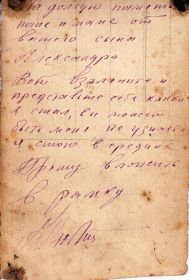 На долгую память
папе и маме от
вашего сына
Александра
Вот взгляните и
представьте себе какой
я стал, вы может
быть меня не узнаете
я стою в середине
Прошу вложить
в рамку